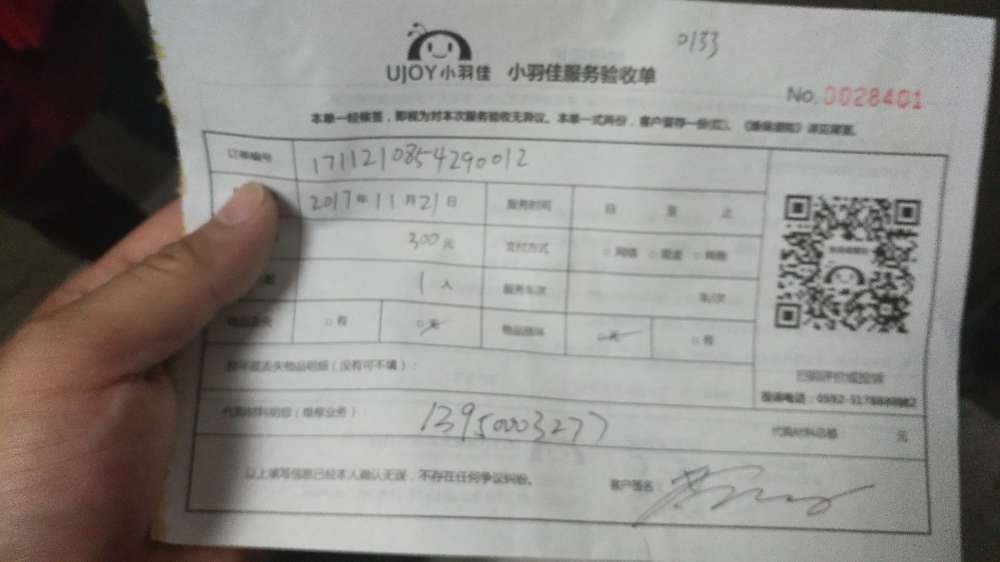 0133
UJOY小羽佳 小羽佳服务验收单
No. 0028401
本单一经核签，即视为对本次服务验收无异议。本单一式两份，客户留存一份
订单编号 1711210854290012
2017年11月21日 服务时间 自 至 止
300元 支付方式 □网络 □现金 □转账
1人 服务车次 车/次
物品丢失 □有 □无 物品损坏 □无 □有
损坏或丢失物品明细（没有可不填）：
扫码评价或投诉
代购材料明细（维修业务）： 13950003277 代购材料总额 元
以上填写信息已经本人确认无误，不存在任何争议纠纷。 客户签名：